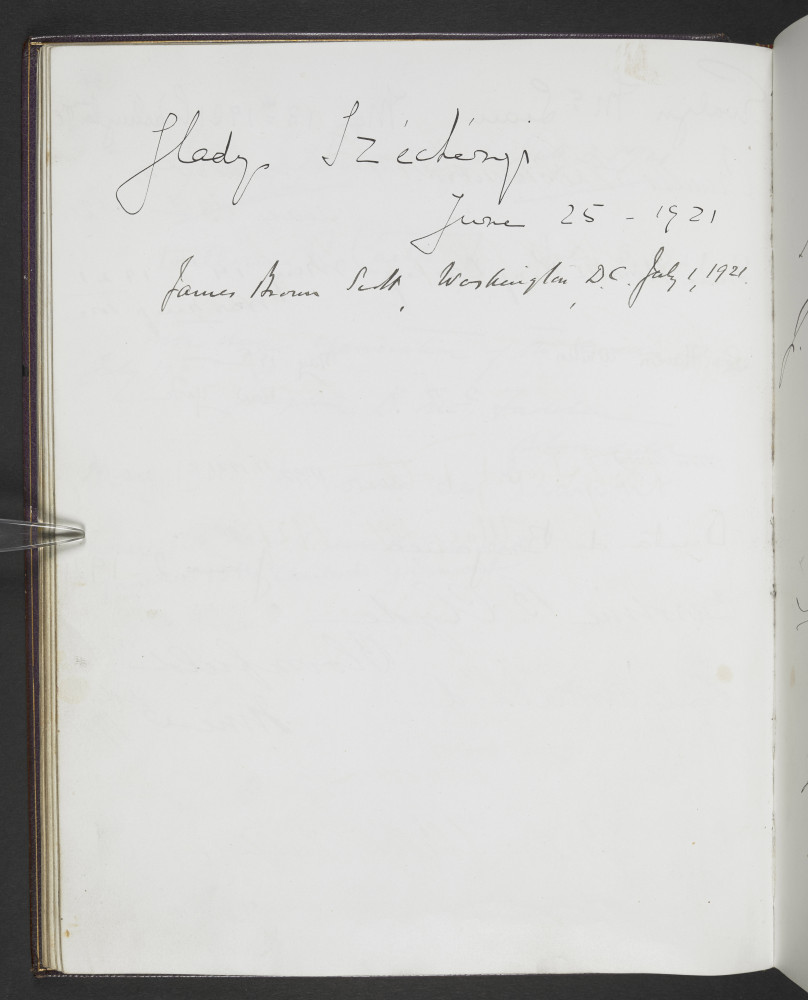 Gladys Széchényi
June 25 - 1921
James Brown Scott, Washington, D.C. July 1, 1921.